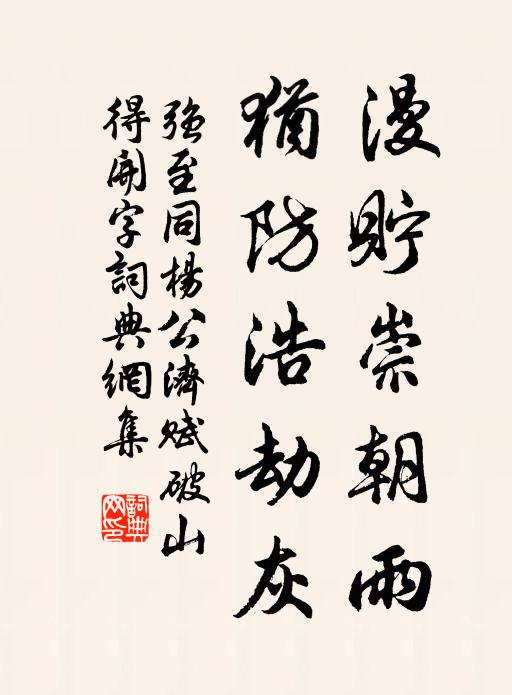 漫貯崇朝雨
猶防浩劫灰
強至同楊公濟賦破山
得開字詞典網集
詞典
网印